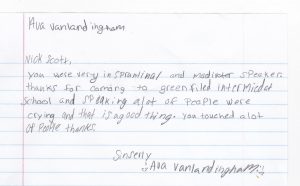 Ava vanlandingham
Vick Scott,
you were very inspraminal and madivater speaker
thanks for coming to greenfiled intermedet
School and speaking alot of people were
crying and that is a good thing. you touched alot
of people thanks.
Sinselly
Ava vanlandingham